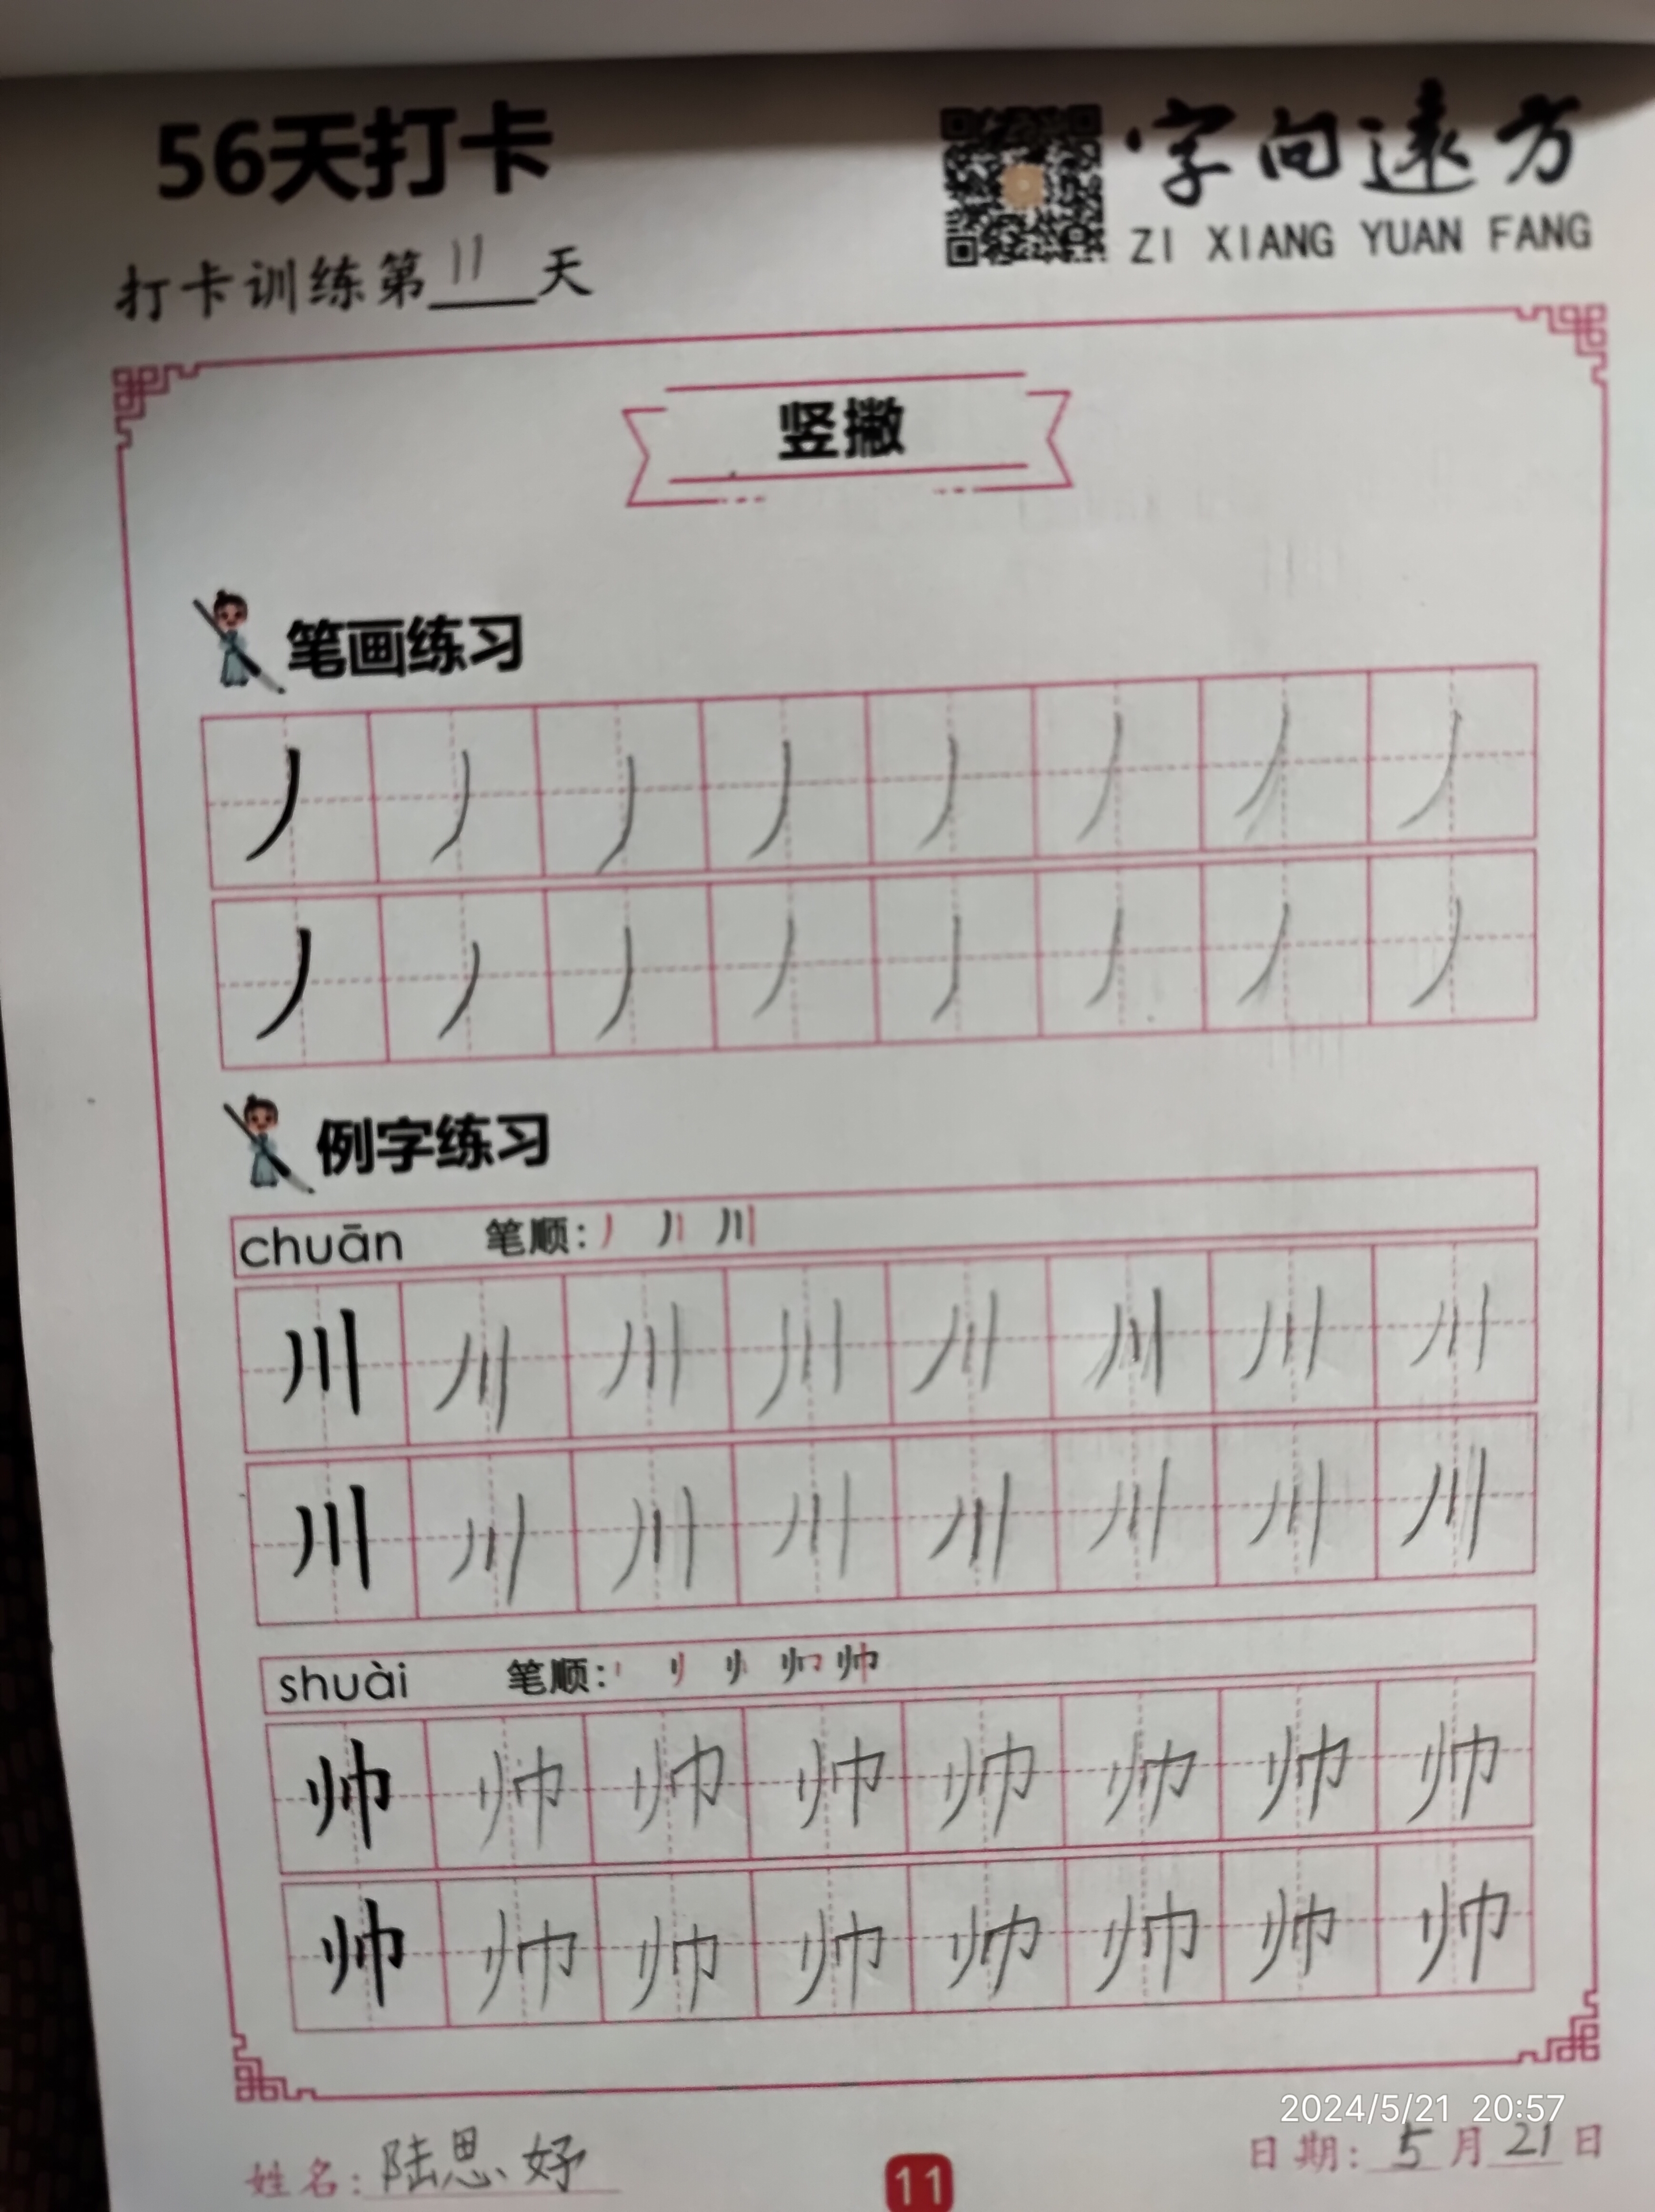 56天打卡
字向遠方
ZI XIANG YUAN FANG
打卡训练第11天
竖撇
笔画练习
丿 丿 丿 丿 丿 丿 丿 丿
丿 丿 丿 丿 丿 丿 丿 丿
例字练习
chuān 笔顺: 丿 川
川 川 川 川 川 川 川 川
川 川 川 川 川 川 川 川
shuài 笔顺: 帅
帅 帅 帅 帅 帅 帅 帅 帅
帅 帅 帅 帅 帅 帅 帅 帅
2024/5/21 20:57
姓名: 陆思妤
11
日期: 5月21日